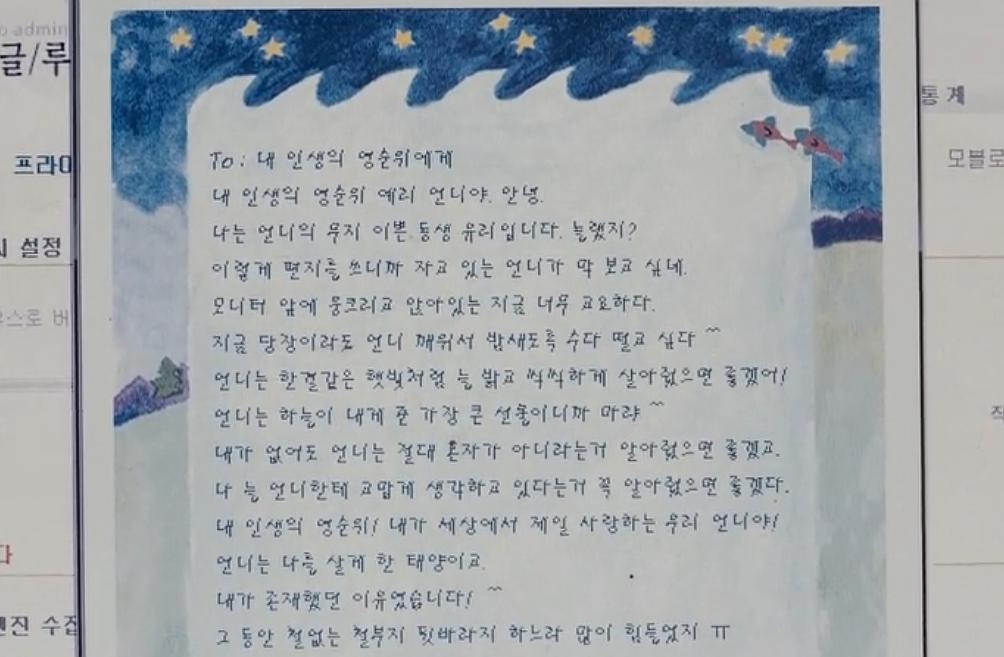 admin
글/루
통계
프라이
모블로
설정
To: 내 인생의 영순위에게
내 인생의 영순위 예리 언니야. 안녕.
나는 언니의 무지 이쁜 동생 유리입니다. 놀랬지?
이렇게 편지를 쓰니까 자고 있는 언니가 막 보고 싶네.
모니터 앞에 웅크리고 앉아있는 지금 너무 고요하다.
지금 당장이라도 언니 깨워서 밤새도록 수다 떨고 싶다 ^^
언니는 한결같은 햇빛처럼 늘 밝고 씩씩하게 살아줬으면 좋겠어!
언니는 하늘이 내게 준 가장 큰 선물이니까 마랴 ^^
내가 없어도 언니는 절대 혼자가 아니라는거 알아줬으면 좋겠고.
나 늘 언니한테 고맙게 생각하고 있다는거 꼭 알아줬으면 좋겠다.
내 인생의 영순위! 내가 세상에서 제일 사랑하는 우리 언니야!
언니는 나를 살게 한 태양이고.
내가 존재했던 이유였습니다! ^^
그 동안 철없는 철부지 뒷바라지 하느라 많이 힘들었지 ㅠ